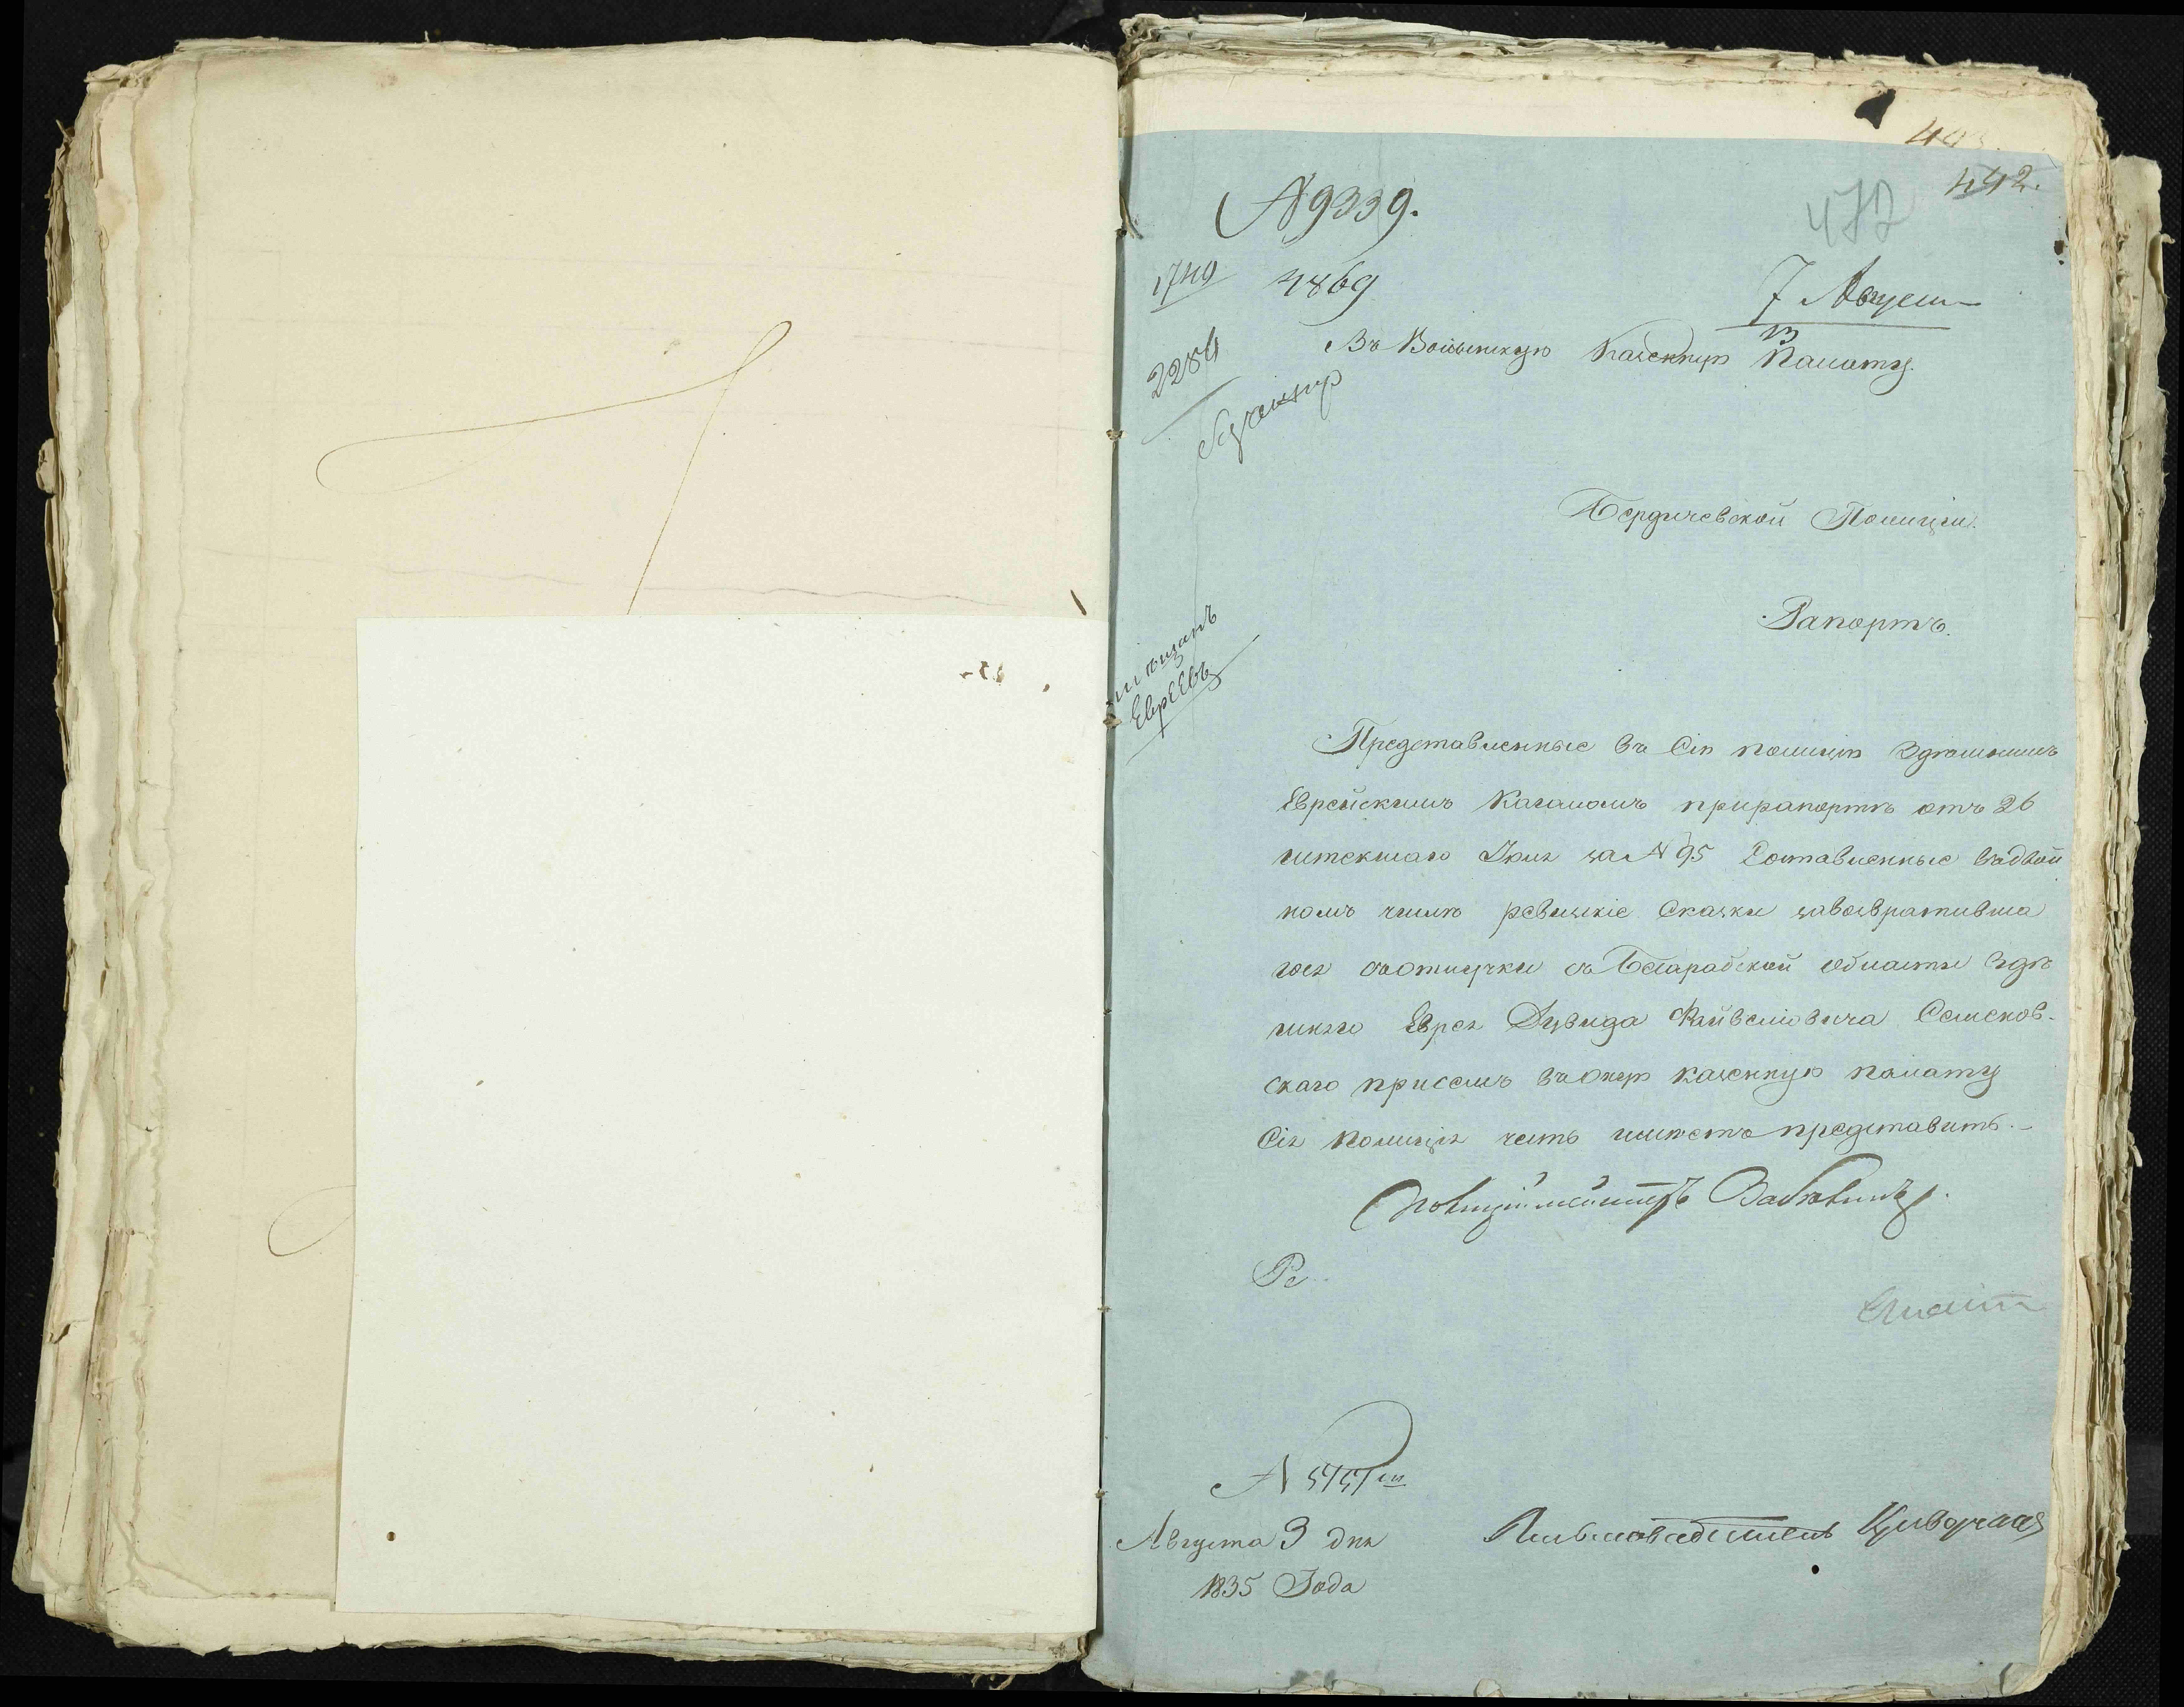 442.
472
№ 9339.
1740 4869
7 Август
13
2284
Въ Волынскую Казенную Палату.
Бердичевской Полиціи.
Рапортъ.
мѣщанъ
Евреевъ
Представленные въ Сію полицію Здѣшнимъ
Еврейскимъ Кагаломъ прирапортѣ отъ 26
истекшаго Іюля за № 95 Составленные въдвой
номъ числѣ ревизкіе Сказки завозвративша
гося съотлучки съ Бесарабской области здѣ
шняго Еврея Дувида Файвеліовича Семенов-
скаго присемъ въОную казенную палату
Сія полиція честь имѣетъ представить.-
Полицiймейстеръ
№ 5757
Августа 3 дня
1835 Года
Письмоводитель